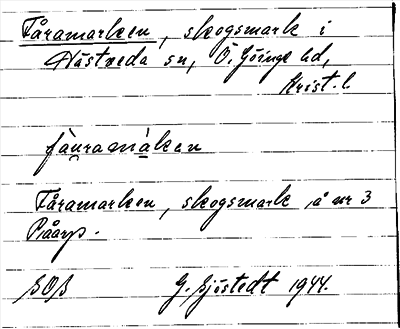 Fåramarken, skogsmark i
Hästveda sn, Ö. Göinge hd,
Krist. l.
fàuramàken
Fåramarken, skogsmark å nr 3
Påarp.
G. Sjöstedt 1944.